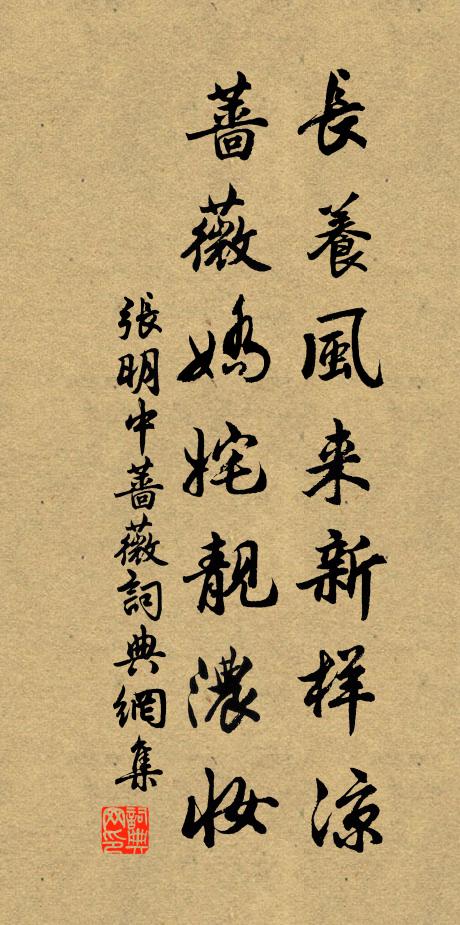 長養風来新样涼
薔薇嬌姹靚濃妝
張明中薔薇詞典網集
詞典
网印